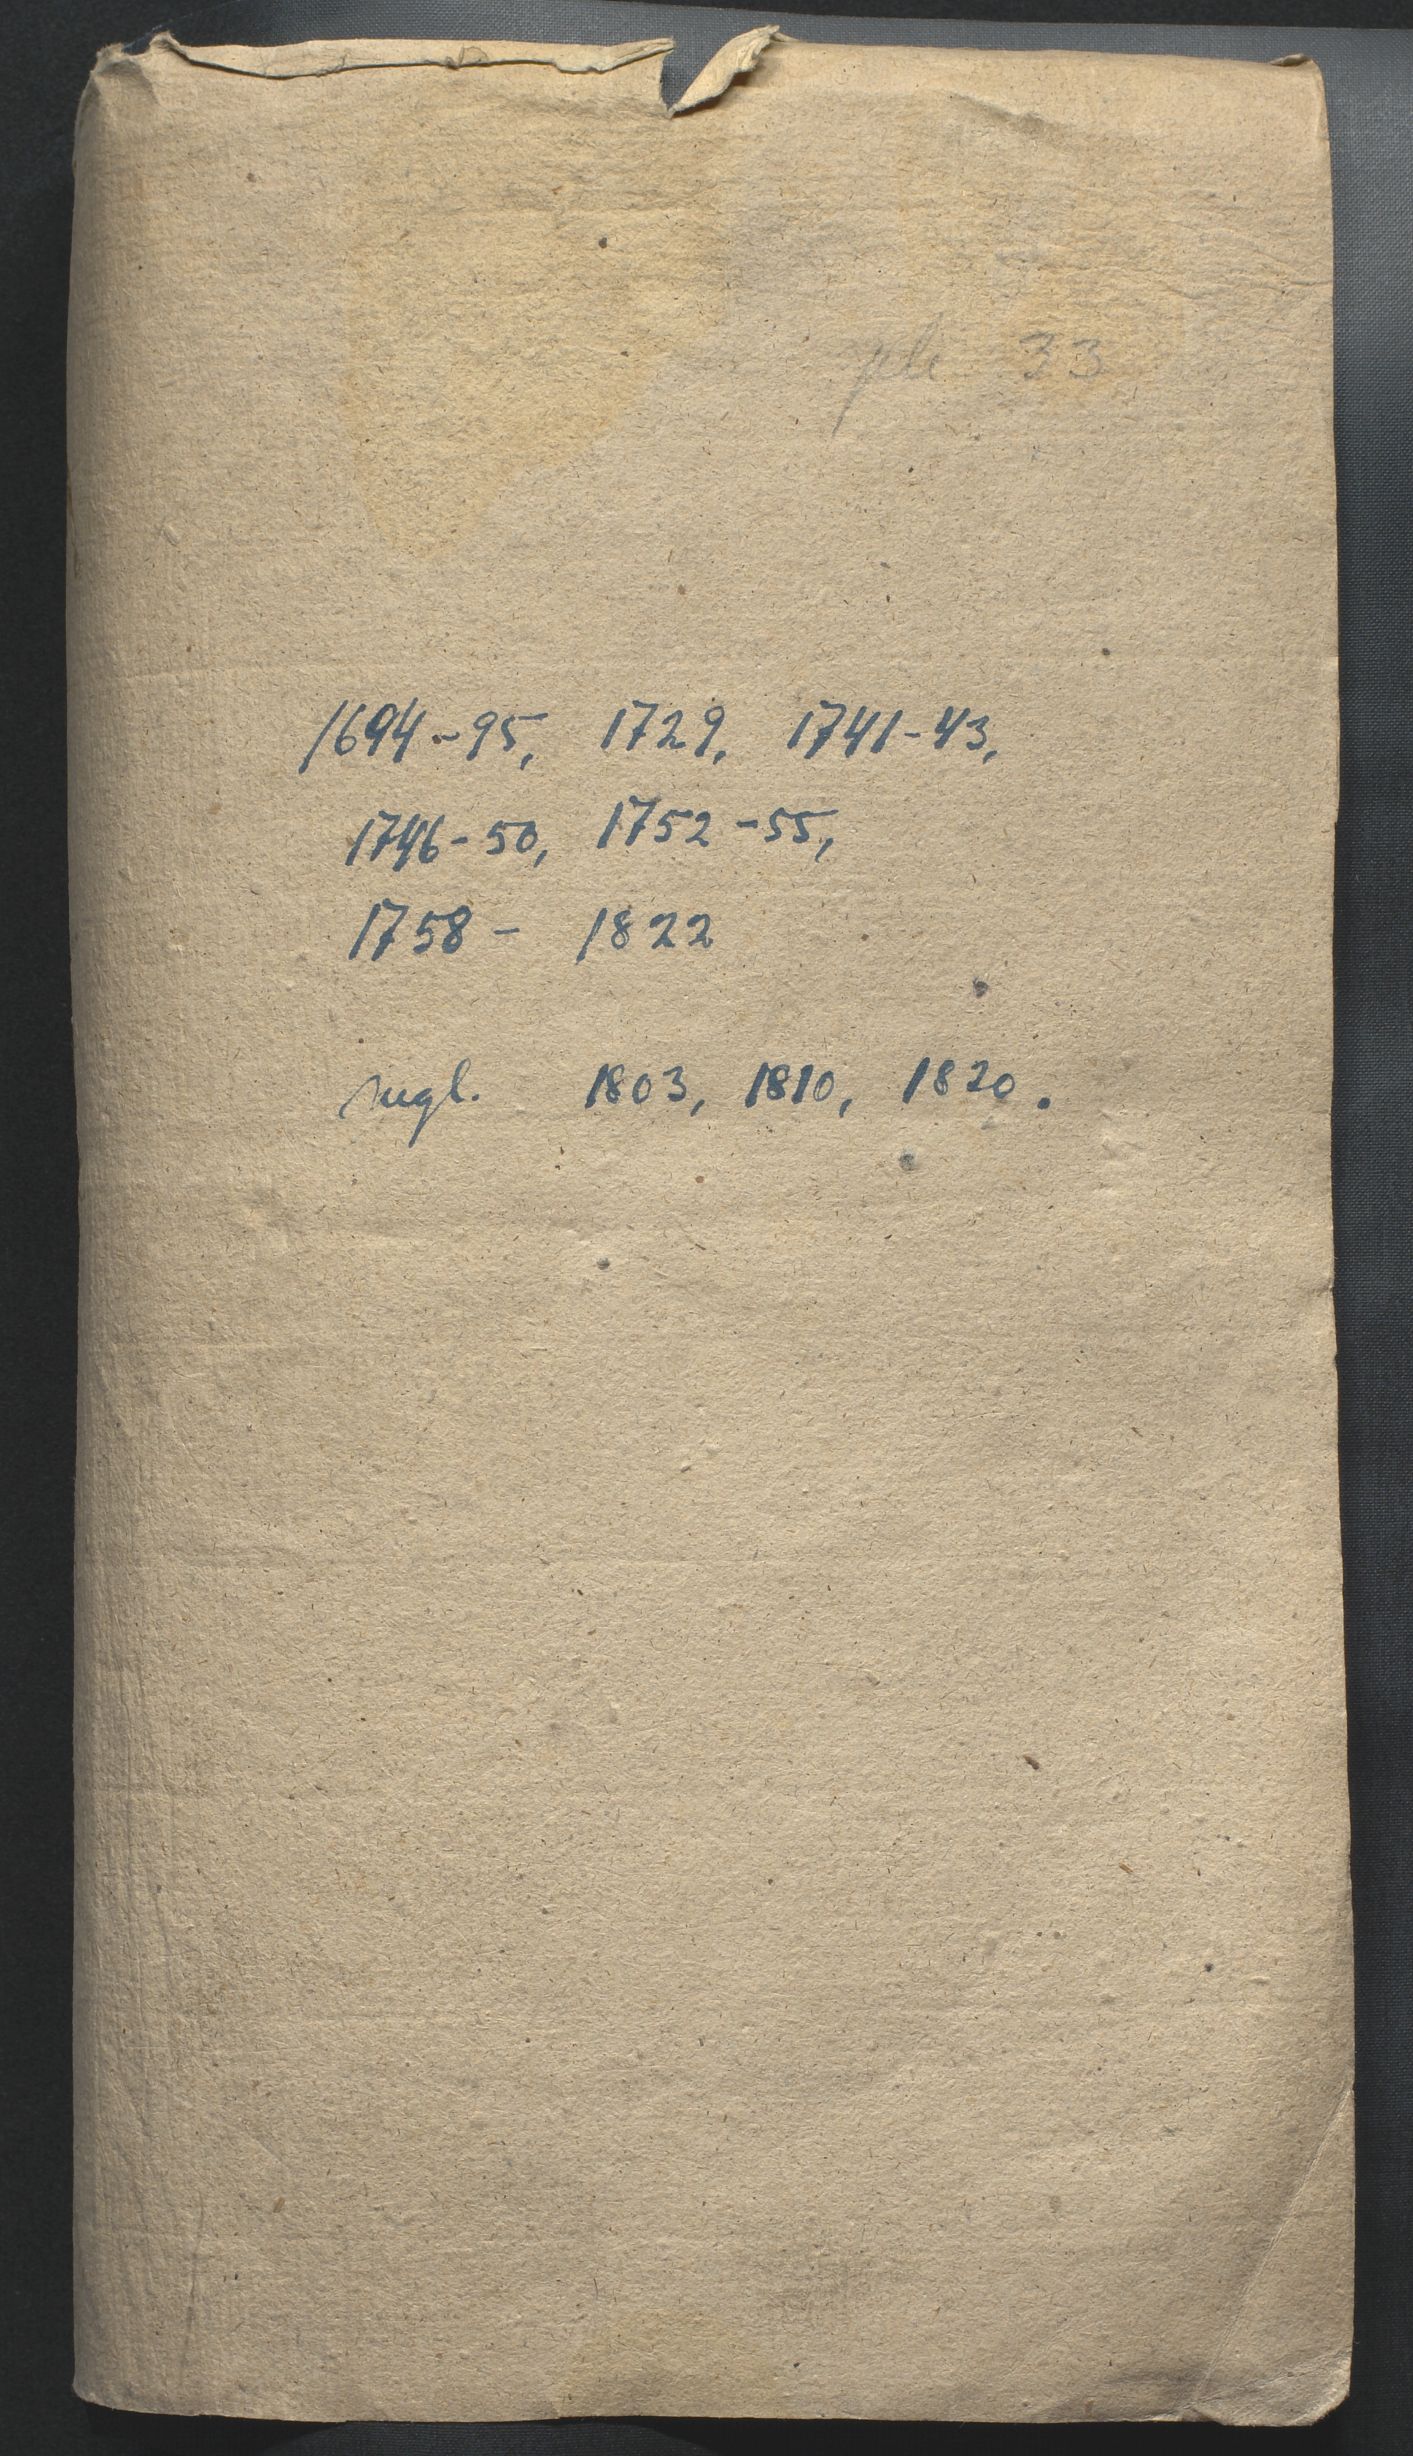 33
1694-95, 1729, 1741-43,
1746-50, 1752-55,
1758- 1822
mgl. 1803, 1810, 1820.